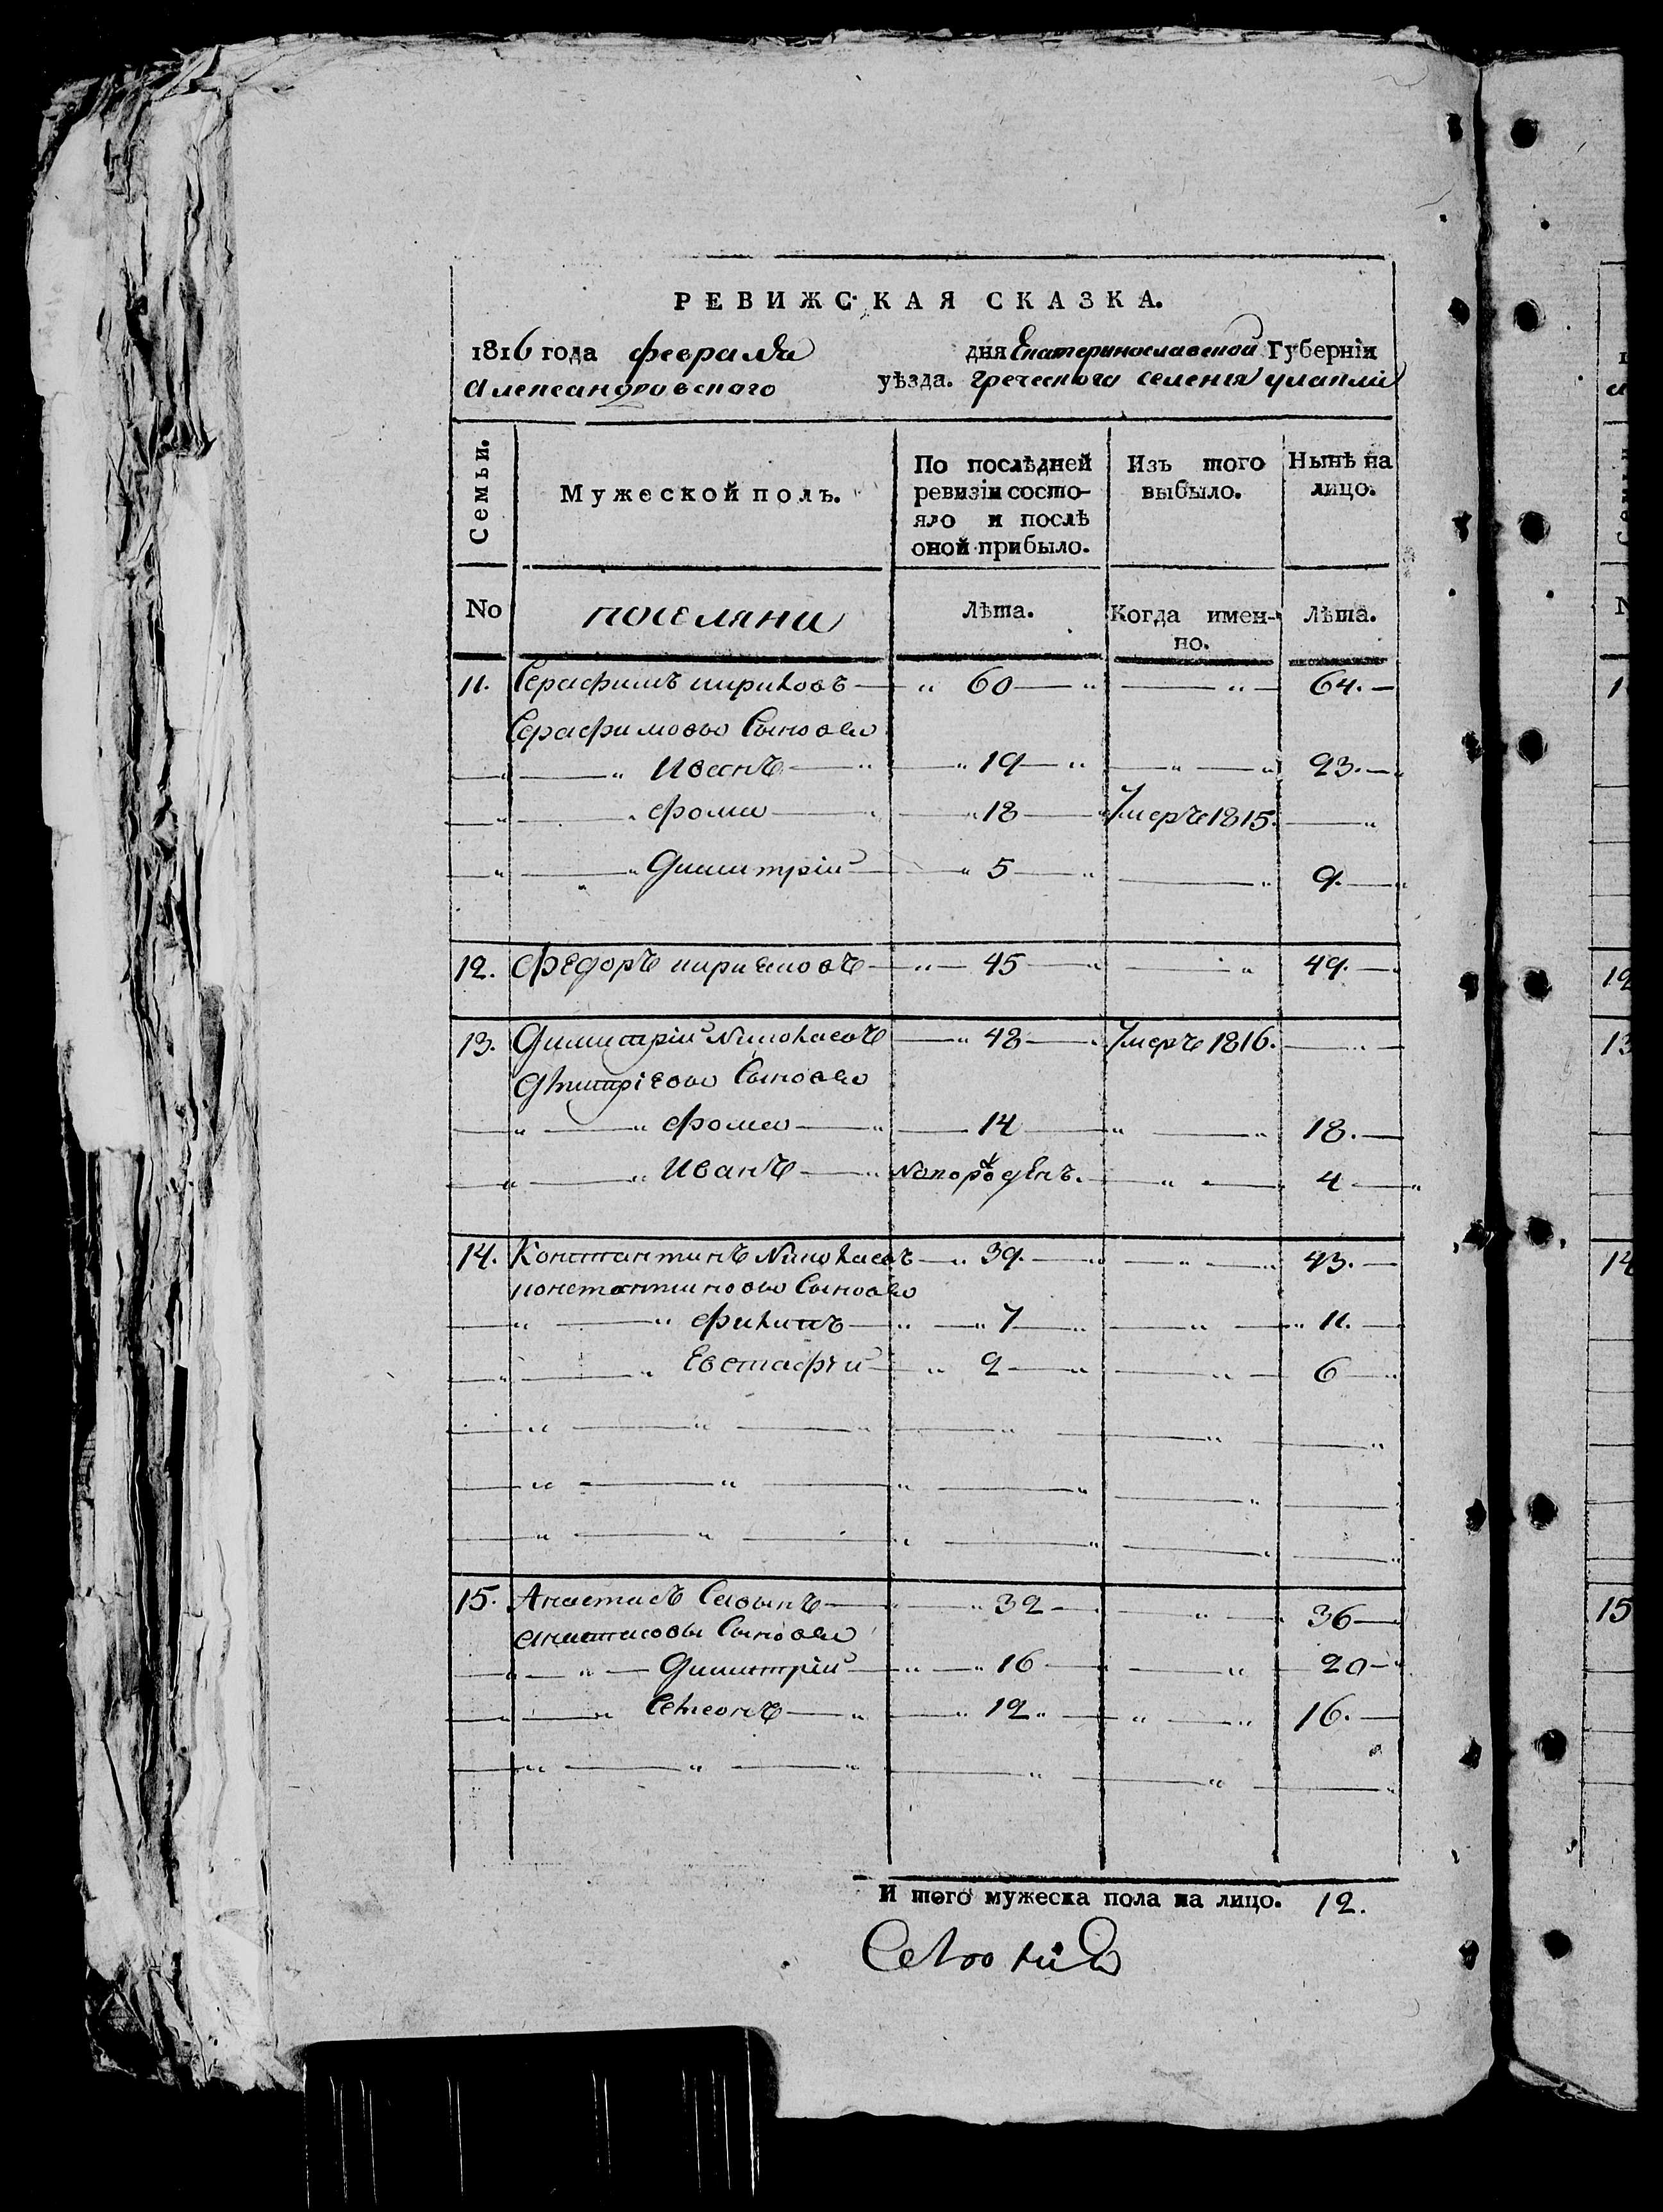 РЕВИЖСКАЯ СКАЗКА.
1816 года февраля дня Екатеринославской Губерніи
Александровского уѣзда. греческого селенія улаклы
Семьи. Мужеской полъ. По послѣдней ревизіи состояло и послѣ оной прибыло. Изъ того выбыло. Нынѣ на лицо.
No поселяни Лѣта. Когда именно. Лѣта.
11. Серафимъ кириковъ 60 64.
Серафимовы Сыновья
Иванъ 19 23.
фома 18 Умеръ 1815.
Димитрій 5 9.
12. Федоръ 45 49.
13. Димитрій 48 Умеръ 1816.
Дмитріевы Сыновья
фома 14 18.
Иванъ Новорожденъ. 4
14. Константинъ 39. 43.
константиновы Сыновья
филипъ 7 11.
Евстафій 2 6
15. Анастасъ 32 36
анастасовы Сыновья
Димитрій 16 20
Семеонъ 12 16.
И того мужеска пола на лицо. 12.